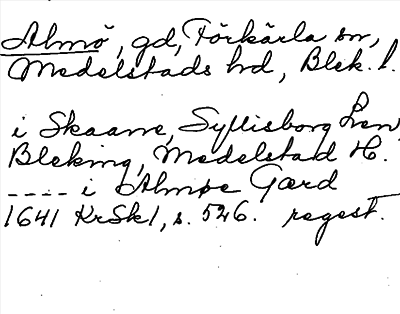 Almö, gd, Förkärla sn,
Medelstads hd, Blek. l.
i Skaane, Syllisborg Len
Bleking, Medelstad H.
---- i Almøe Gærd
1641 KrSkl, s. 526. regest.